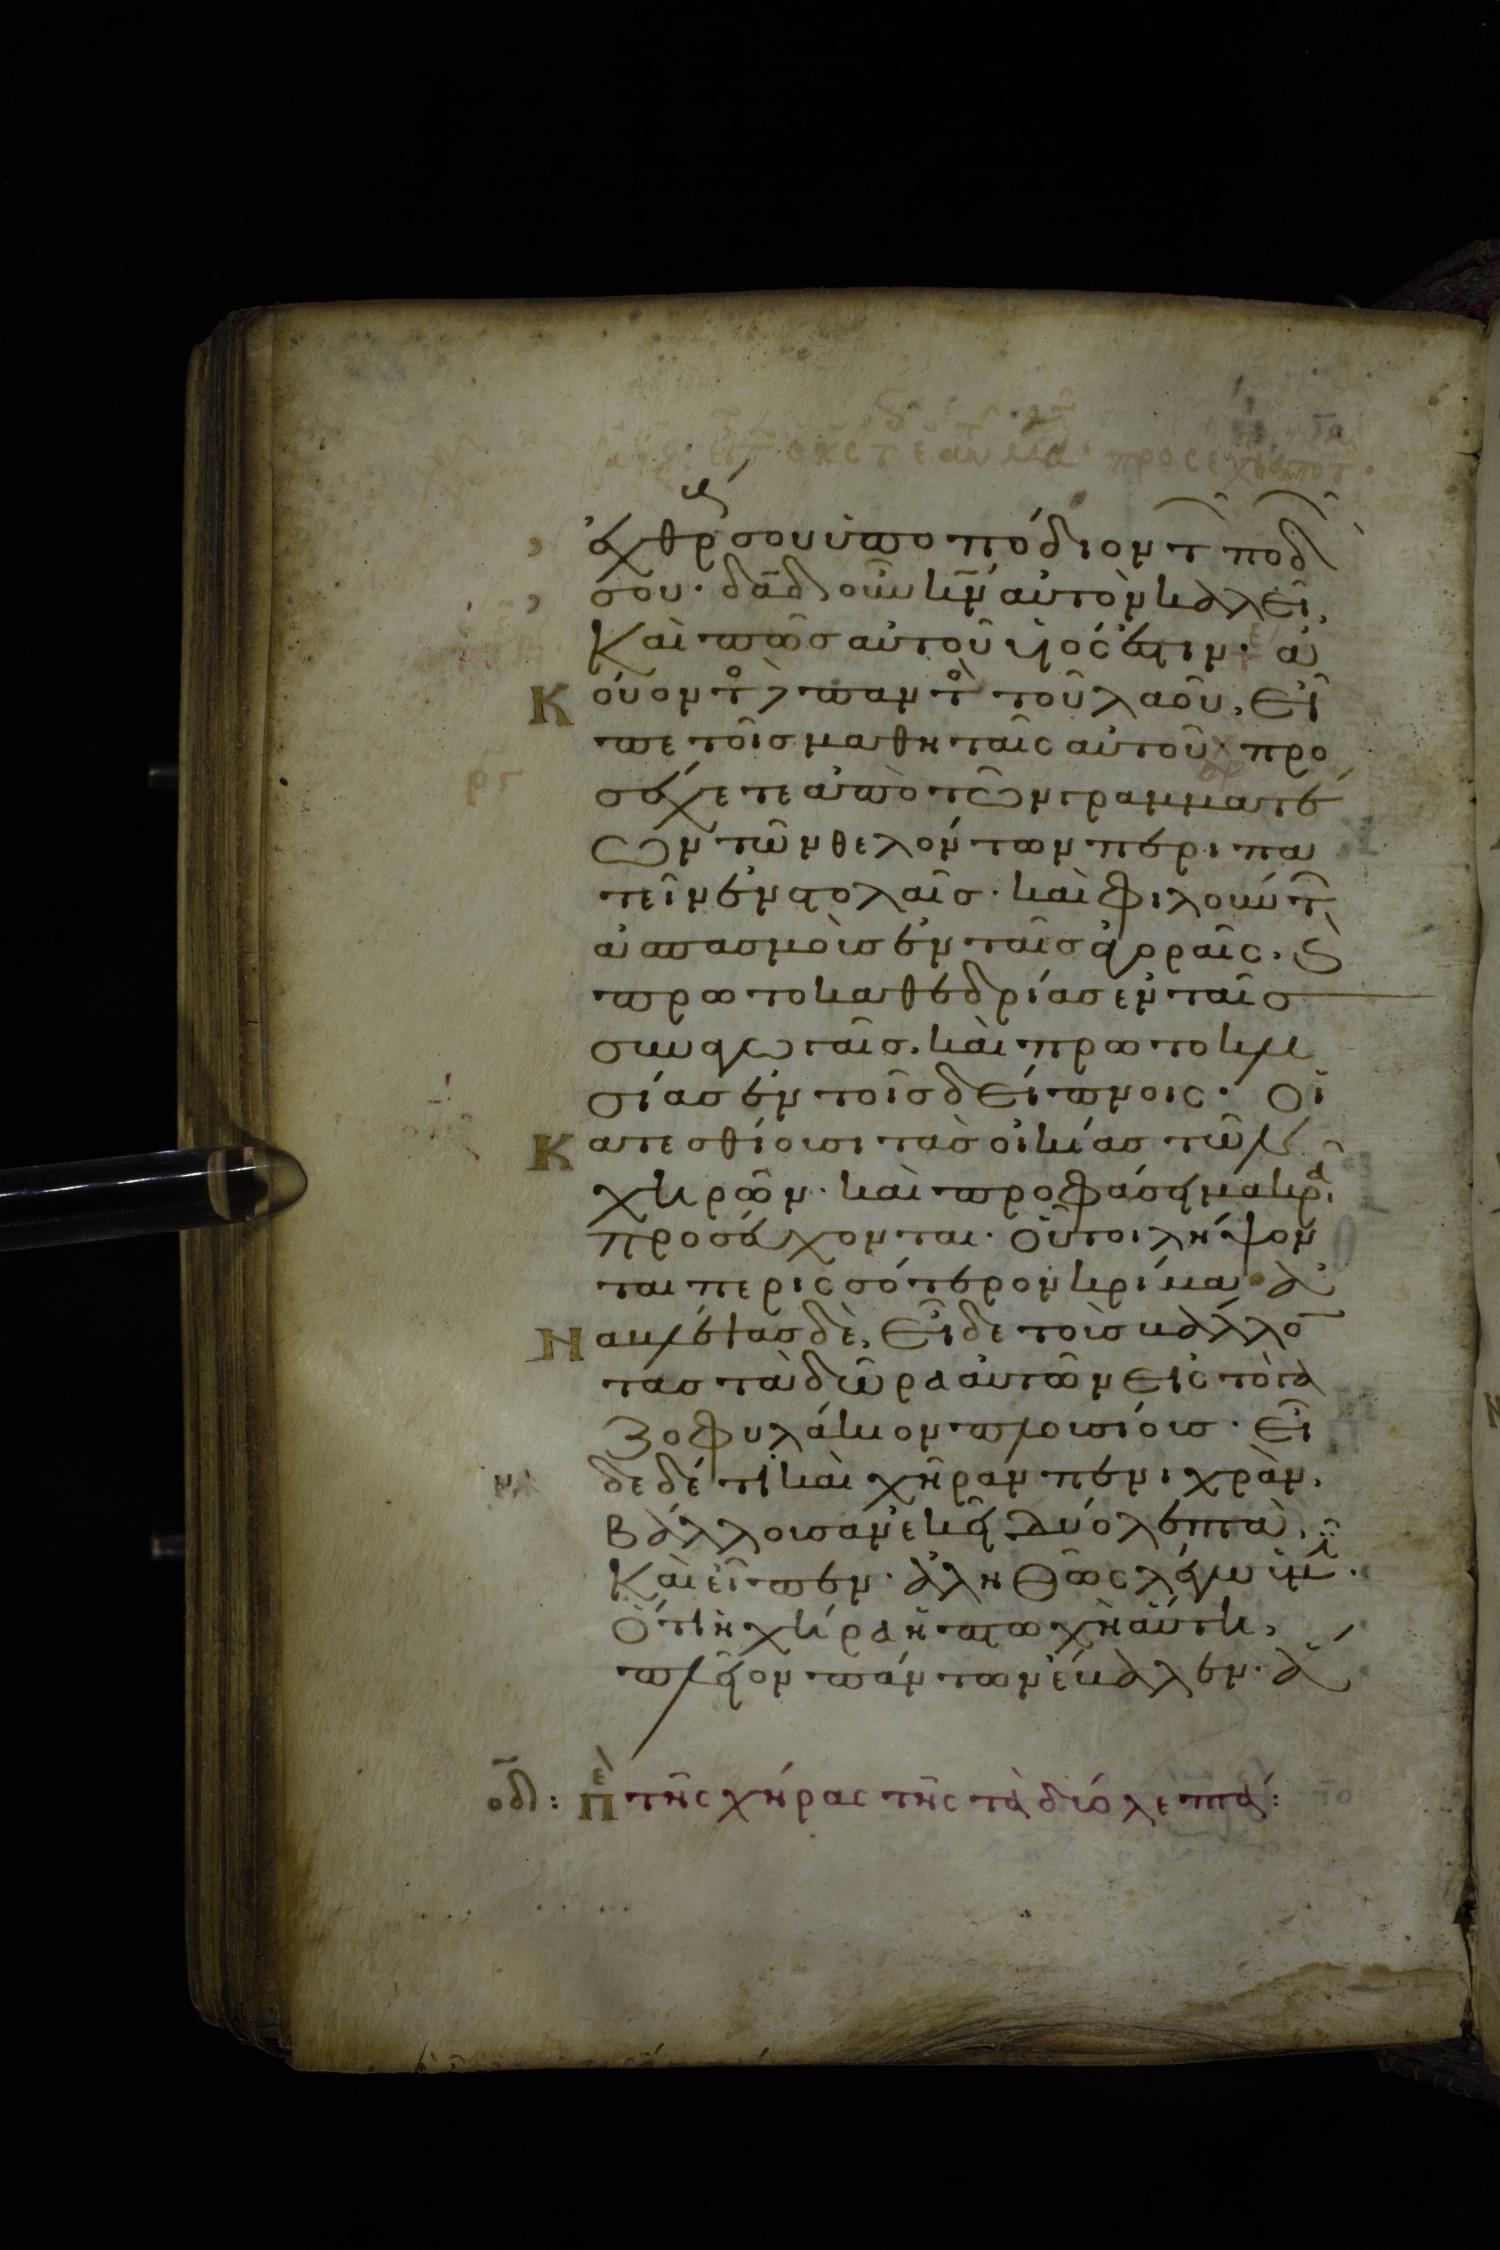 ἐχθρούς σου ὑποπόδιον τῶν ποδῶν
σου· δαδ οὖν κν αὐτὸν καλεῖ,
Καὶ πῶς αὐτοῦ υἱός ἐστιν· ἀ
Κούοντος δὲ παντὸς τοῦ λαοῦ, εἶ
πε τοῖς μαθηταῖς αὐτοῦ· προ
σέχετε ἀπὸ τῶν γραμματέ
ων τῶν θελόντων περιπα
τεῖν ἐν στολαῖς· καὶ φιλούντων
ἀσπασμοὺς ἐν ταῖς ἀγοραῖς· καὶ
πρωτοκαθεδρίας ἐν ταῖς
συναγωγαῖς· καὶ πρωτοκλι
σίας ἐν τοῖς δείπνοις· Οἳ
Κατεσθίουσι τὰς οἰκίας τῶν
χηρῶν· καὶ προφάσει μακρὰ
προσεύχονται· οὗτοι λήψον
ται περισσότερον κρίμα· ἀ
Ναβλέψας δὲ, εἶδε τοὺς βάλλον
τας τὰ δῶρα αὐτῶν εἰς τὸ γα
ζοφυλάκιον πλουσίους· εἶ
δε δέ τινα καὶ χήραν πενιχρὰν,
βάλλουσαν ἐκεῖ δύο λεπτὰ,
Καὶ εἶπεν· ἀληθῶς λέγω ὑμῖν·
Ὅτι ἡ χήρα ἡ πτωχὴ αὕτη,
πλεῖον πάντων ἔβαλεν· ἅ
οδ: Πε τῆς χήρας τῆς τὰ δύο λεπτά: